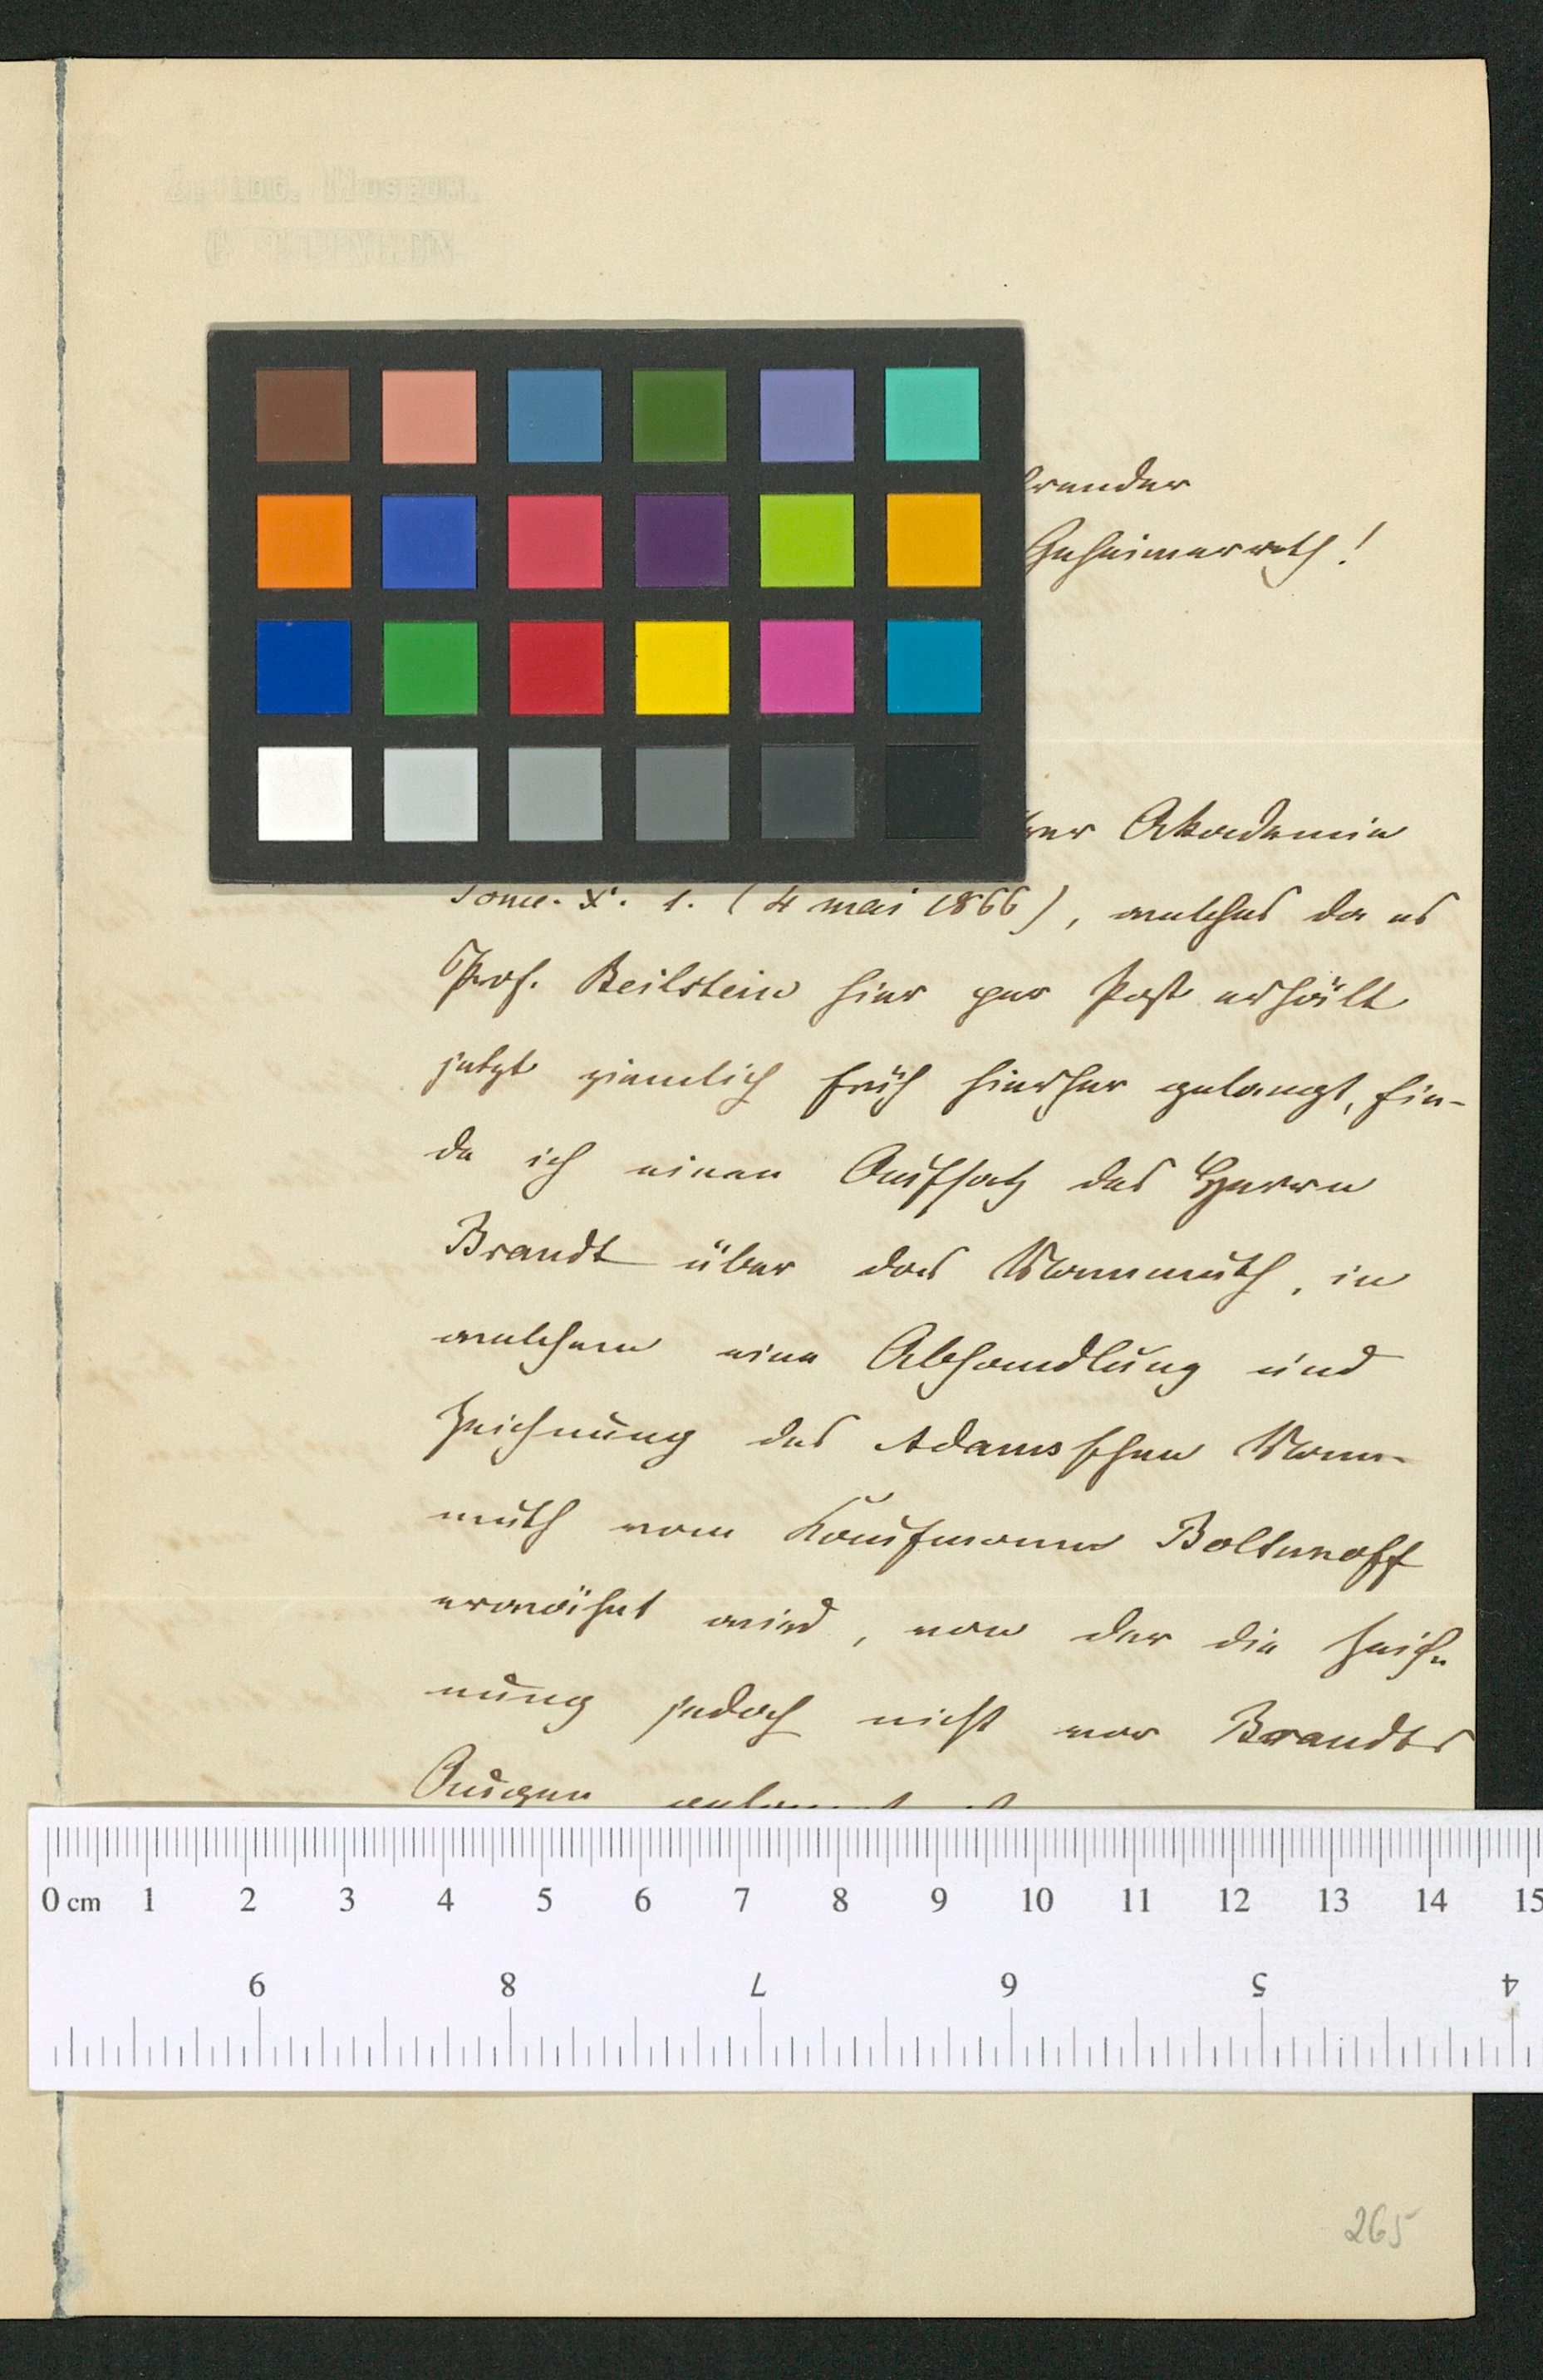 Geheimerrath!
Akademie
Tome. X. 1. (4 mai 1866), welches da es
Prof. Beilstein hier per Post erhält
jetzt ziemlich früh hierher gelangt, fin-
de ich einen Aufsatz des Herrn
Brandt über das Mammuth, in
welchem eine Abhandlung und
Zeichnung des Adamsschen Mam-
muth vom Kaufmann Boltunoff
erwähnt wird, von der die Zeich-
nung jedoch nicht vor Brandts
Augen
0 cm 1 2 3 4 5 6 7 8 9 10 11 12 13 14 15
9 8 7 6 5 4
265